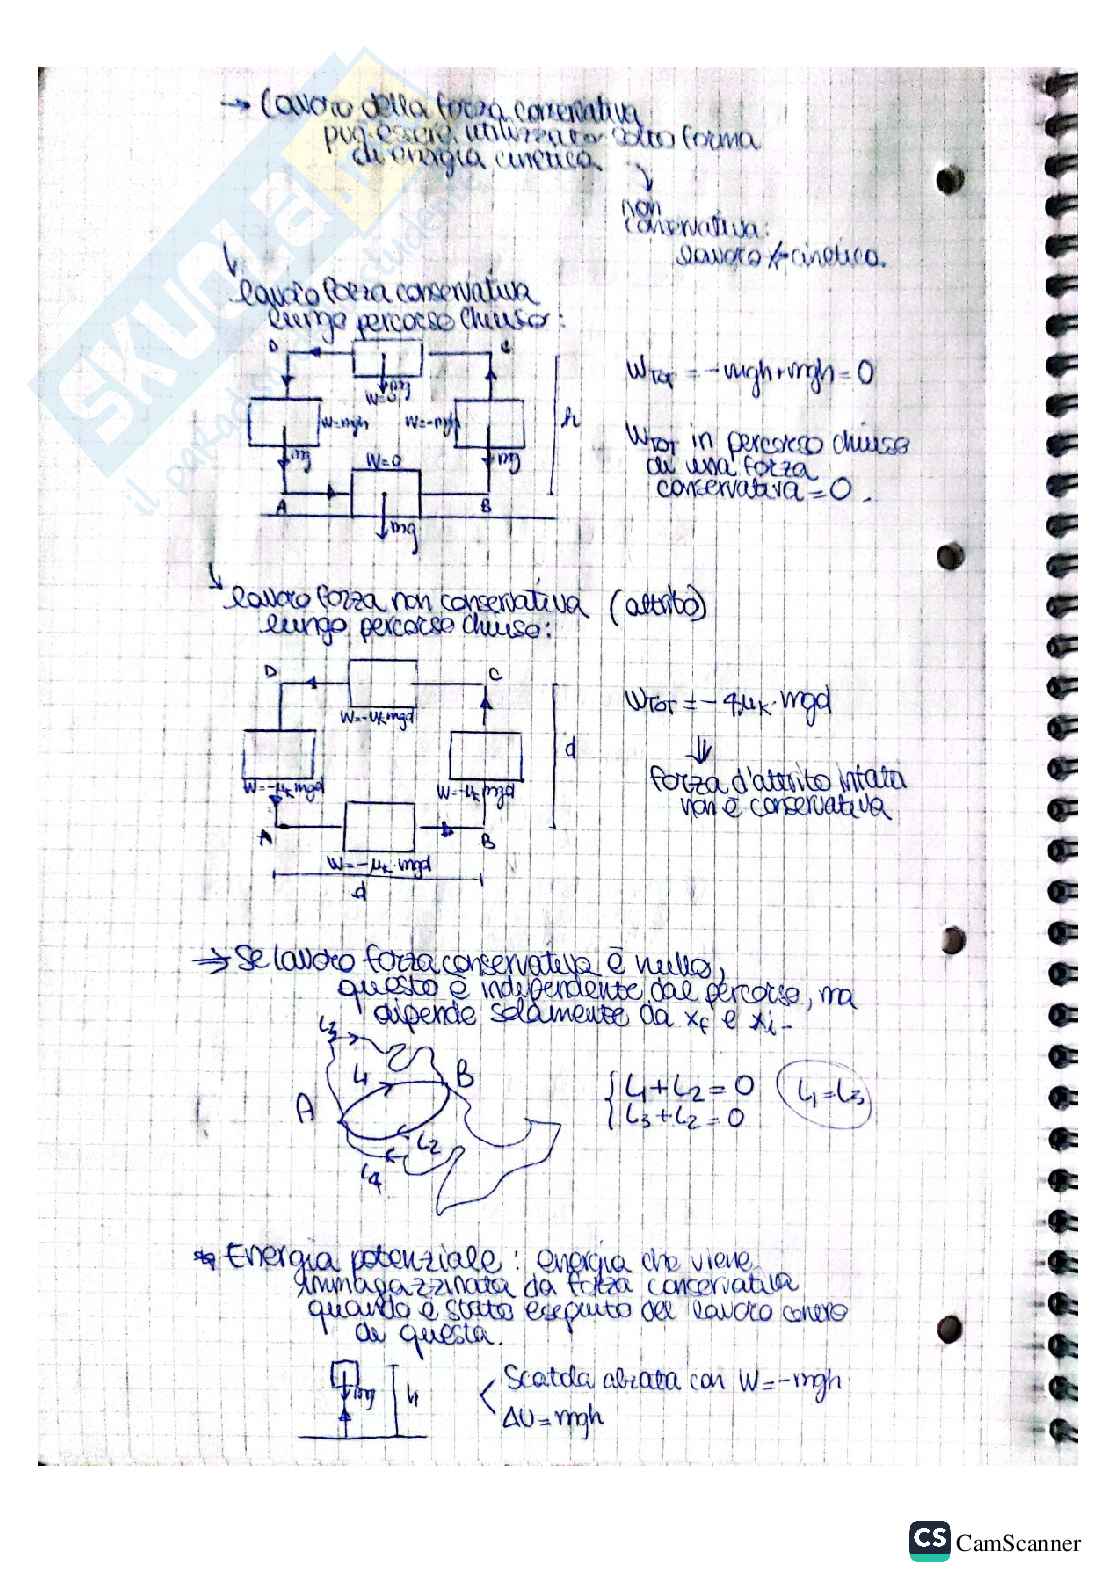 → lavoro della forza conservativa
può essere utilizzato sotto forma
di energia cinetica
non
conservativa:
lavoro ≠ cinetica.
lavoro forza conservativa
lungo percorso chiuso:
D
C
W=0
mg
W=mgh
W=-mgh
h
mg
mg
W=0
A
B
mg
WTOT = -mgh+mgh = 0
WTOT in percorso chiuso
di una forza
conservativa = 0.
lavoro forza non conservativa (attrito)
lungo percorso chiuso:
D
C
W=-μkmgd
d
W=-μkmgd
W=-μkmgd
A
B
W=-μk·mgd
d
WTOT = -4μk·mgd
⇓
forza d'attrito infatti
non è conservativa
⇒ Se lavoro forza conservativa è nullo,
questo è indipendente dal percorso, ma
dipende solamente da xf e xi-
L3
L1
B
A
L2
L4
L1+L2=0
L3+L2=0
L1=L3
Energia potenziale: energia che viene
immagazzinata da forza conservativa
quando è stato eseguito del lavoro contro
di questa.
mg
h
Scatola alzata con W=-mgh
ΔU=mgh
SKUOLA
il paradiso
studente
CS CamScanner